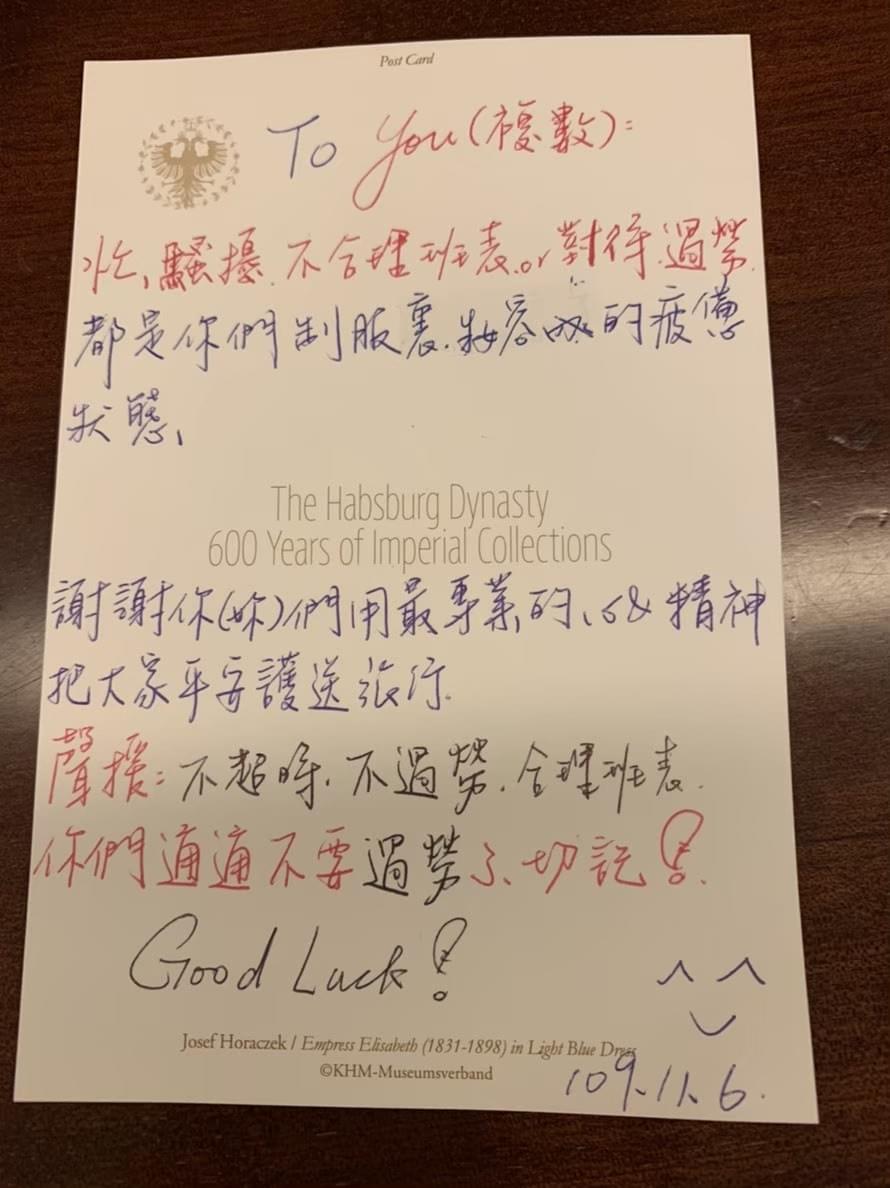 Post Card
To You(複數):
忙、騷擾.不合理班表.or對待.過勞.
都是你們制服裏.妝容的疲憊
狀態、
The Habsburg Dynasty
600 Years of Imperial Collections
謝謝你(妳)們用最專業的、精神
把大家平安護送旅行.
聲援:不超時.不過勞.合理班表.
你們通通不要過勞了、切記!
Good Luck!
^ ^
Josef Horaczek / Empress Elisabeth (1831-1898) in Light Blue Dress
©KHM-Museumsverband
109.11.6.